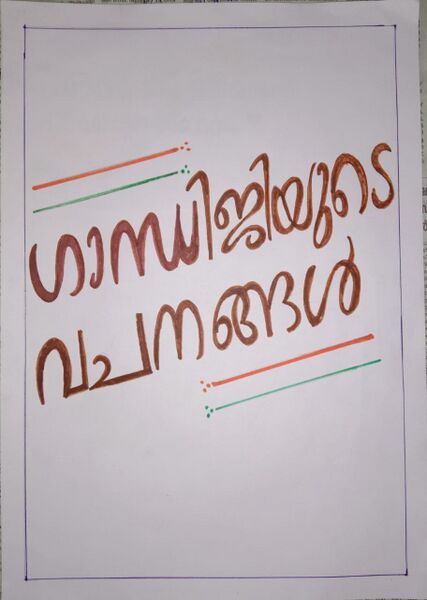 ഗാന്ധിജിയുടെ
വചനങ്ങൾ